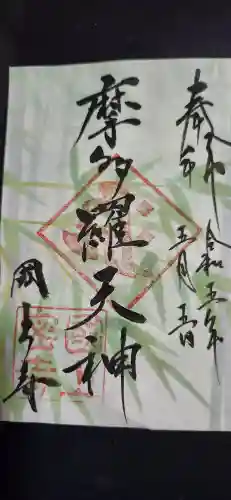 奉拝
令和五年
五月五日
摩多羅天神
國上寺